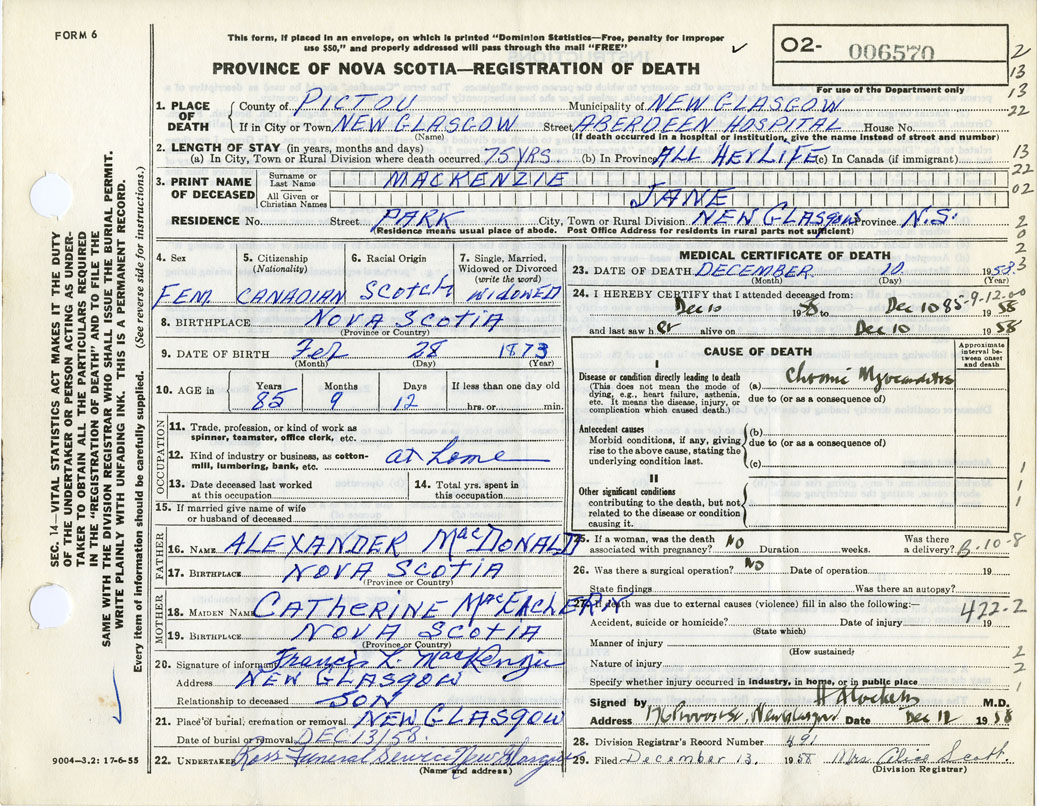 FORM 6
This form, if placed in an envelope, on which is printed "Dominion Statistics—Free, penalty for improper
use $50," and properly addressed will pass through the mail "FREE"
PROVINCE OF NOVA SCOTIA—REGISTRATION OF DEATH
O2- 006570
For use of the Department only
1. PLACE OF DEATH
County of PICTOU Municipality of NEW GLASGOW
If in City or Town NEW GLASGOW Street ABERDEEN HOSPITAL House No.
(Name) (If death occurred in a hospital or institution, give the name instead of street and number)
2. LENGTH OF STAY (in years, months and days)
(a) In City, Town or Rural Division where death occurred 75 YRS. (b) In Province ALL HER LIFE (c) In Canada (if immigrant)
3. PRINT NAME OF DECEASED
Surname or Last Name MACKENZIE
All Given or Christian Names JANE
RESIDENCE No. Street PARK City, Town or Rural Division NEW GLASGOW Province N.S.
(Residence means usual place of abode. Post Office Address for residents in rural parts not sufficient)
2
13
13
22
13
22
02
2
0
2
3
4. Sex 5. Citizenship (Nationality) 6. Racial Origin 7. Single, Married, Widowed or Divorced (write the word)
FEM. CANADIAN SCOTCH WIDOWED
8. BIRTHPLACE NOVA SCOTIA
9. DATE OF BIRTH Feb 28 1873
(Month) (Day) (Year)
10. AGE in Years Months Days If less than one day old
85 9 12 hrs. or min.
OCCUPATION
11. Trade, profession, or kind of work as
spinner, teamster, office clerk, etc.
12. Kind of industry or business, as cotton-
mill, lumbering, bank, etc. at home
13. Date deceased last worked
at this occupation
14. Total yrs. spent in
this occupation
15. If married give name of wife
or husband of deceased
FATHER
16. NAME ALEXANDER MacDONALD
17. BIRTHPLACE NOVA SCOTIA
(Province or Country)
MOTHER
18. MAIDEN NAME CATHERINE MacEACHERN
19. BIRTHPLACE NOVA SCOTIA
(Province or Country)
20. Signature of informant Francis L. MacKenzie
Address NEW GLASGOW
Relationship to deceased SON
21. Place of burial, cremation or removal NEW GLASGOW
Date of burial or removal DEC 13/58.
22. UNDERTAKER Ross Funeral Service New Glasgow
(Name and address)
MEDICAL CERTIFICATE OF DEATH
23. DATE OF DEATH DECEMBER 10 1958
(Month) (Day) (Year)
24. I HEREBY CERTIFY that I attended deceased from:
85-9-12-00
Dec 10 1958 to Dec 10 1958
and last saw her alive on Dec 10 1958
CAUSE OF DEATH
Approximate interval between onset and death
I
Disease or condition directly leading to death
(This does not mean the mode of
dying, e.g., heart failure, asthenia,
etc. It means the disease, injury, or
complication which caused death.)
(a) Chronic Myocarditis
due to (or as a consequence of)
Antecedent causes
Morbid conditions, if any, giving
rise to the above cause, stating the
underlying condition last.
(b)
due to (or as a consequence of)
(c)
II
Other significant conditions
contributing to the death, but not
related to the disease or condition
causing it.
1
1
1
25. If a woman, was the death
associated with pregnancy? NO Duration weeks. Was there
a delivery?
B-10-8
26. Was there a surgical operation? NO Date of operation 19
State findings Was there an autopsy?
27. If death was due to external causes (violence) fill in also the following:—
422-2
Accident, suicide or homicide? Date of injury 19
(State which)
Manner of injury
(How sustained)
Nature of injury
2
2
Specify whether injury occurred in industry, in home, or in public place
1
Signed by M.D.
Address New Glasgow Date Dec 12 1958
28. Division Registrar's Record Number 491
29. Filed December 13, 1958 Mrs Alice Scott.
(Division Registrar)
SEC. 14—VITAL STATISTICS ACT MAKES IT THE DUTY
OF THE UNDERTAKER OR PERSON ACTING AS UNDER-
TAKER TO OBTAIN ALL THE PARTICULARS REQUIRED
IN THE "REGISTRATION OF DEATH" AND TO FILE THE
SAME WITH THE DIVISION REGISTRAR WHO SHALL ISSUE THE BURIAL PERMIT.
WRITE PLAINLY WITH UNFADING INK. THIS IS A PERMANENT RECORD.
Every item of information should be carefully supplied. (See reverse side for instructions.)
9004—3.2: 17-6-55